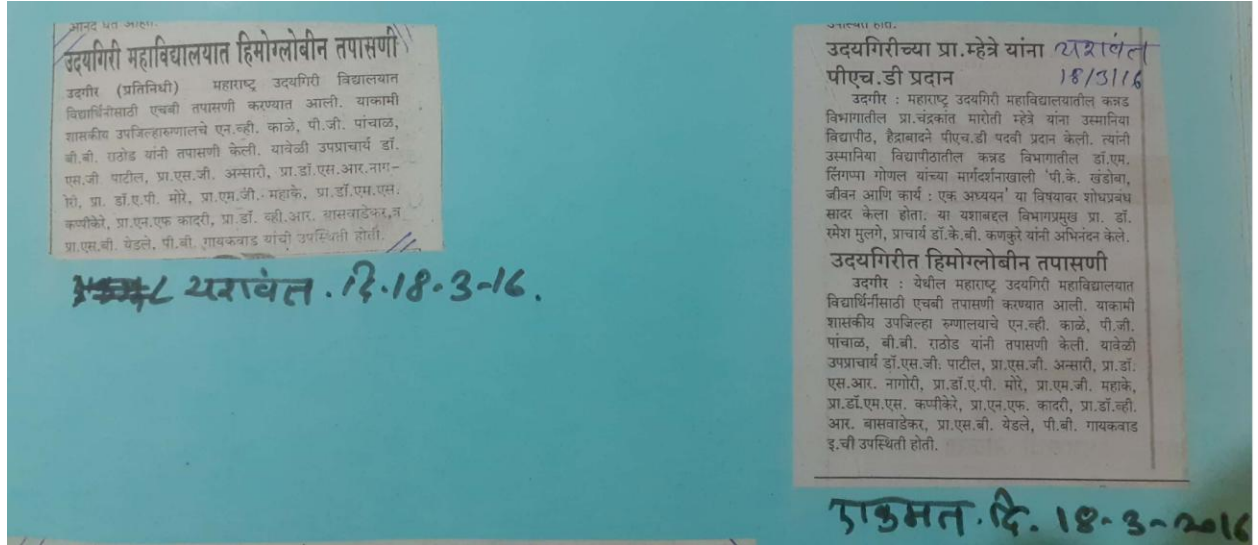 आनंद घेत आहेत.
उदयगिरी महाविद्यालयात हिमोग्लोबीन तपासणी
उदगीर (प्रतिनिधी) महाराष्ट्र उदयगिरी विद्यालयात
विद्यार्थिनींसाठी एचबी तपासणी करण्यात आली. याकामी
शासकीय उपजिल्हारुग्णालचे एन.व्ही. काळे, पी.जी. पांचाळ,
बी.बी. राठोड यांनी तपासणी केली. यावेळी उपप्राचार्य डॉ.
एस.जी. पाटील, प्रा.एस.जी. अन्सारी, प्रा.डॉ.एस.आर.नाग-
ोरी, प्रा. डॉ.ए.पी. मोरे, प्रा.एम.जी. महाके, प्रा.डॉ.एम.एस.
कप्पीकेरे, प्रा.एन.एफ कादरी, प्रा.डॉ. व्ही.आर. बासवाडेकर,व
प्रा.एस.बी. येडले, पी.बी. गायकवाड यांची उपस्थिती होती.
यशवंत. दि.18-3-16.
उपस्थित होते.
उदयगिरीच्या प्रा.म्हेत्रे यांना यशवंत
पीएच.डी प्रदान 18/3/16
उदगीर : महाराष्ट्र उदयगिरी महाविद्यालयातील कन्नड
विभागातील प्रा.चंद्रकांत मारोती म्हेत्रे यांना उस्मानिया
विद्यापीठ, हैद्राबादने पीएच.डी पदवी प्रदान केली. त्यांनी
उस्मानिया विद्यापीठातील कन्नड विभागातील डॉ.एम.
लिंगप्पा गोणल यांच्या मार्गदर्शनाखाली 'पी.के. खंडोबा,
जीवन आणि कार्य : एक अध्ययन' या विषयावर शोधप्रबंध
सादर केला होता. या यशाबद्दल विभागप्रमुख प्रा. डॉ.
रमेश मुलगे, प्राचार्य डॉ.के.बी. कणकुरे यांनी अभिनंदन केले.
उदयगिरीत हिमोग्लोबीन तपासणी
उदगीर : येथील महाराष्ट्र उदयगिरी महाविद्यालयात
विद्यार्थिनींसाठी एचबी तपासणी करण्यात आली. याकामी
शासकीय उपजिल्हा रुग्णालयाचे एन.व्ही. काळे, पी.जी.
पांचाळ, बी.बी. राठोड यांनी तपासणी केली. यावेळी
उपप्राचार्य डॉ.एस.जी. पाटील, प्रा.एस.जी. अन्सारी, प्रा.डॉ.
एस.आर. नागोरी, प्रा.डॉ.ए.पी. मोरे, प्रा.एम.जी. महाके,
प्रा.डॉ.एम.एस. कप्पीकेरे, प्रा.एन.एफ. कादरी, प्रा.डॉ.व्ही.
आर. बासवाडेकर, प्रा.एस.बी. येडले, पी.बी. गायकवाड
इ.ची उपस्थिती होती.
एकमत. दि. 18-3-2016